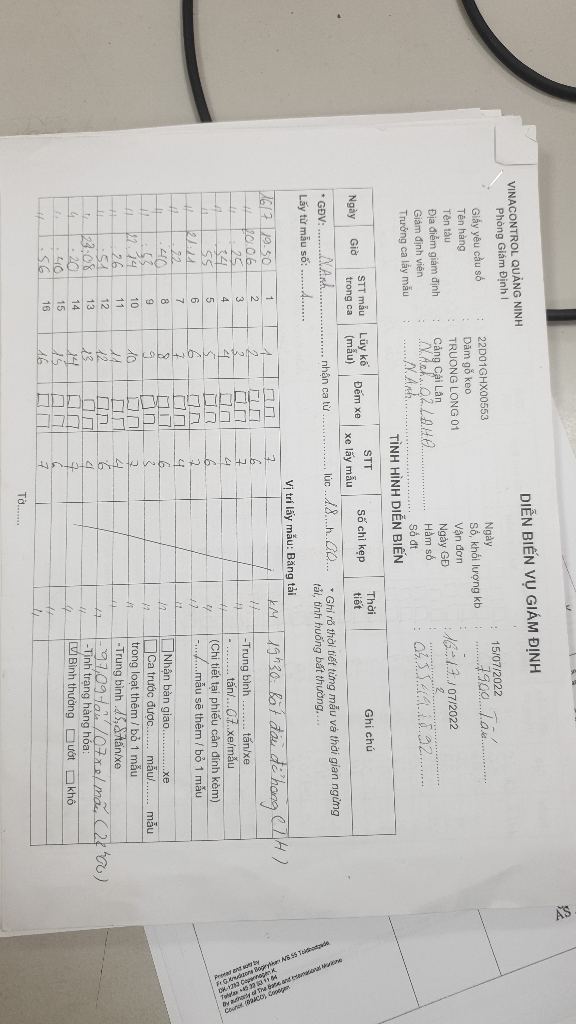 VINACONTROL QUẢNG NINH
Phòng Giám Định I
DIỄN BIẾN VỤ GIÁM ĐỊNH
Giấy yêu cầu số : 22D01GHX00553
Ngày : 15/07/2022
Tên hàng : Dăm gỗ keo
Số, khối lượng kb : 7900 Tấn
Tên tàu : TRUONG LONG 01
Vận đơn : -
Địa điểm giám định : Cảng Cái Lân
Ngày GĐ : 16-17/07/2022
Giám định viên : N.Anh
Hầm số : 2
Trưởng ca lấy mẫu : N.Anh
Số đt
TÌNH HÌNH DIỄN BIẾN
Ngày Giờ STT mẫu trong ca Lũy kế (mẫu) Đếm xe STT xe lấy mẫu Số chì kẹp Thời tiết Ghi chú
* GĐV: N.Anh nhận ca từ lúc 18 h 00
* Ghi rõ thời tiết từng mẫu và thời gian ngừng tải, tình huống bất thường...
Lấy từ mẫu số: 1
Vị trí lấy mẫu: Băng tải
16/7 19.30 1 1 7 KM 19h30 bắt đầu đổ hàng
" 20.06 2 2 6 "
-Trung bình tấn/xe
" :25 3 3 7 "
- tấn/ 07 xe/mẫu
" 4 4 4 "
(Chi tiết tại phiếu cân đính kèm)
" :55 5 5 6
- / mẫu sẽ thêm / bỏ 1 mẫu
" 21.11 6 6 7 "
" :22 7 7 4 "
Nhận bàn giao xe
" :40 8 8 6
Ca trước được mẫu/ mẫu
" 9 9
trong loạt thêm / bỏ 1 mẫu
" 22.14 10 10 7 "
-Trung bình tấn/xe
" :26 11 11 4 "
" :51 12 12 6 "
" 23.08 13 13 4 "
-Tình trạng hàng hóa:
" :20 14 14 7 "
Bình thường ướt khô
" :40 15 15 6
" :56 16 16 7 "
Tờ
Printed and sold by
Fr.G.Knudtzons Bogtrykkeri A/S,55 Toldbodgade,
DK-1253 Copenhagen K,
Telefax +45 33 93 11 84
By authority of The Baltic and International Maritime
Council, (BIMCO), Copenhagen